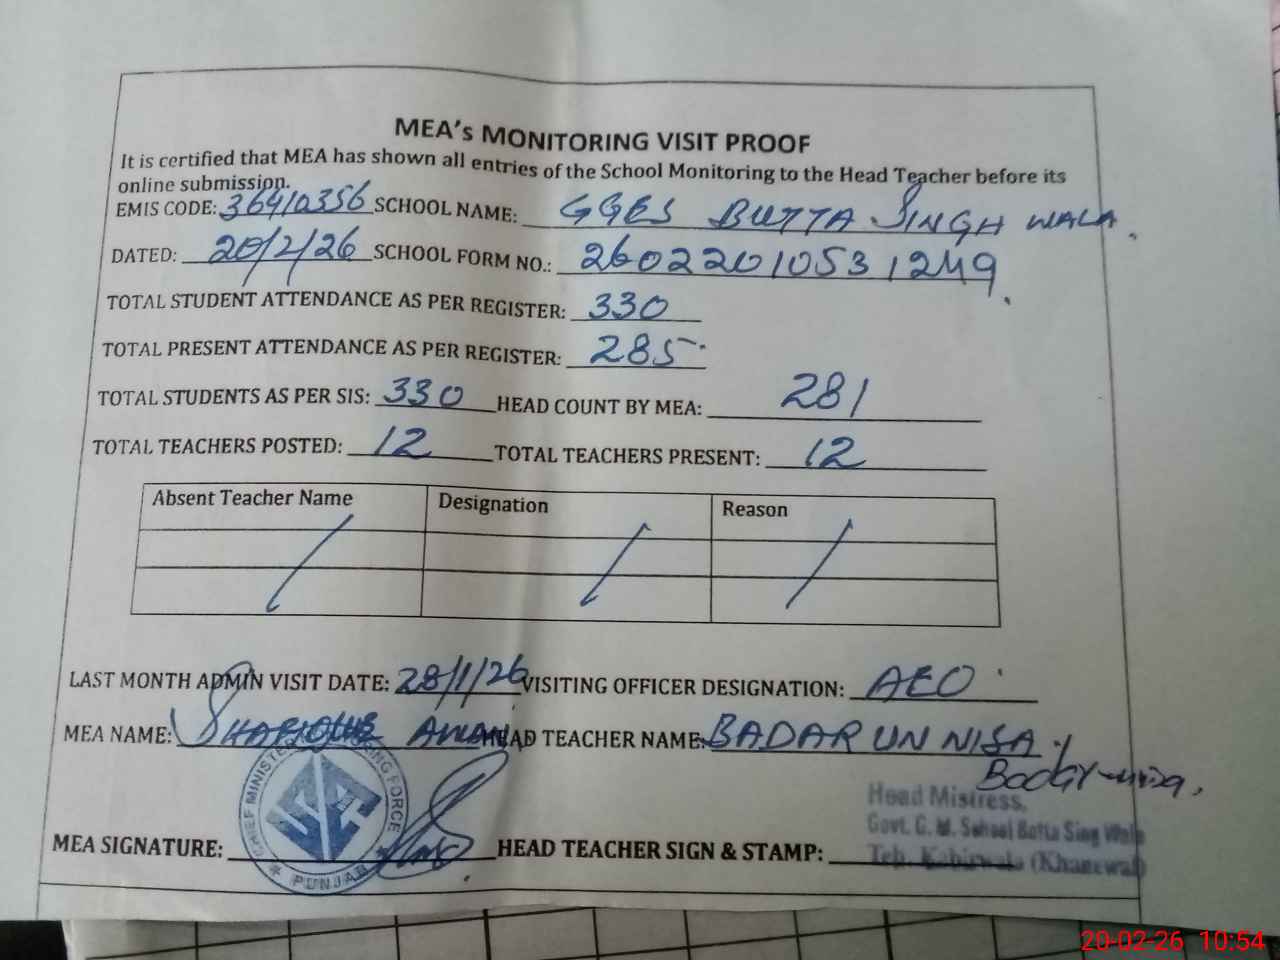 MEA's MONITORING VISIT PROOF
It is certified that MEA has shown all entries of the School Monitoring to the Head Teacher before its
online submission.
EMIS CODE: 36410356 SCHOOL NAME: GGES BUTTA SINGH WALA.
DATED: 20/2/26 SCHOOL FORM NO.: 26022010531249.
TOTAL STUDENT ATTENDANCE AS PER REGISTER: 330
TOTAL PRESENT ATTENDANCE AS PER REGISTER: 285
TOTAL STUDENTS AS PER SIS: 330 HEAD COUNT BY MEA: 281
TOTAL TEACHERS POSTED: 12 TOTAL TEACHERS PRESENT: 12
Absent Teacher Name Designation Reason
LAST MONTH ADMIN VISIT DATE: 28/1/26 VISITING OFFICER DESIGNATION: AEO
MEA NAME: AWAN HEAD TEACHER NAME: BADAR UN NISA
CHIEF MINISTER MONITORING FORCE
PUNJAB
Head Mistress,
Govt. G. M. School Botta Sing Wala
MEA SIGNATURE: HEAD TEACHER SIGN & STAMP: Teh. Kabirwala (Khanewal)
20-02-26 10:54